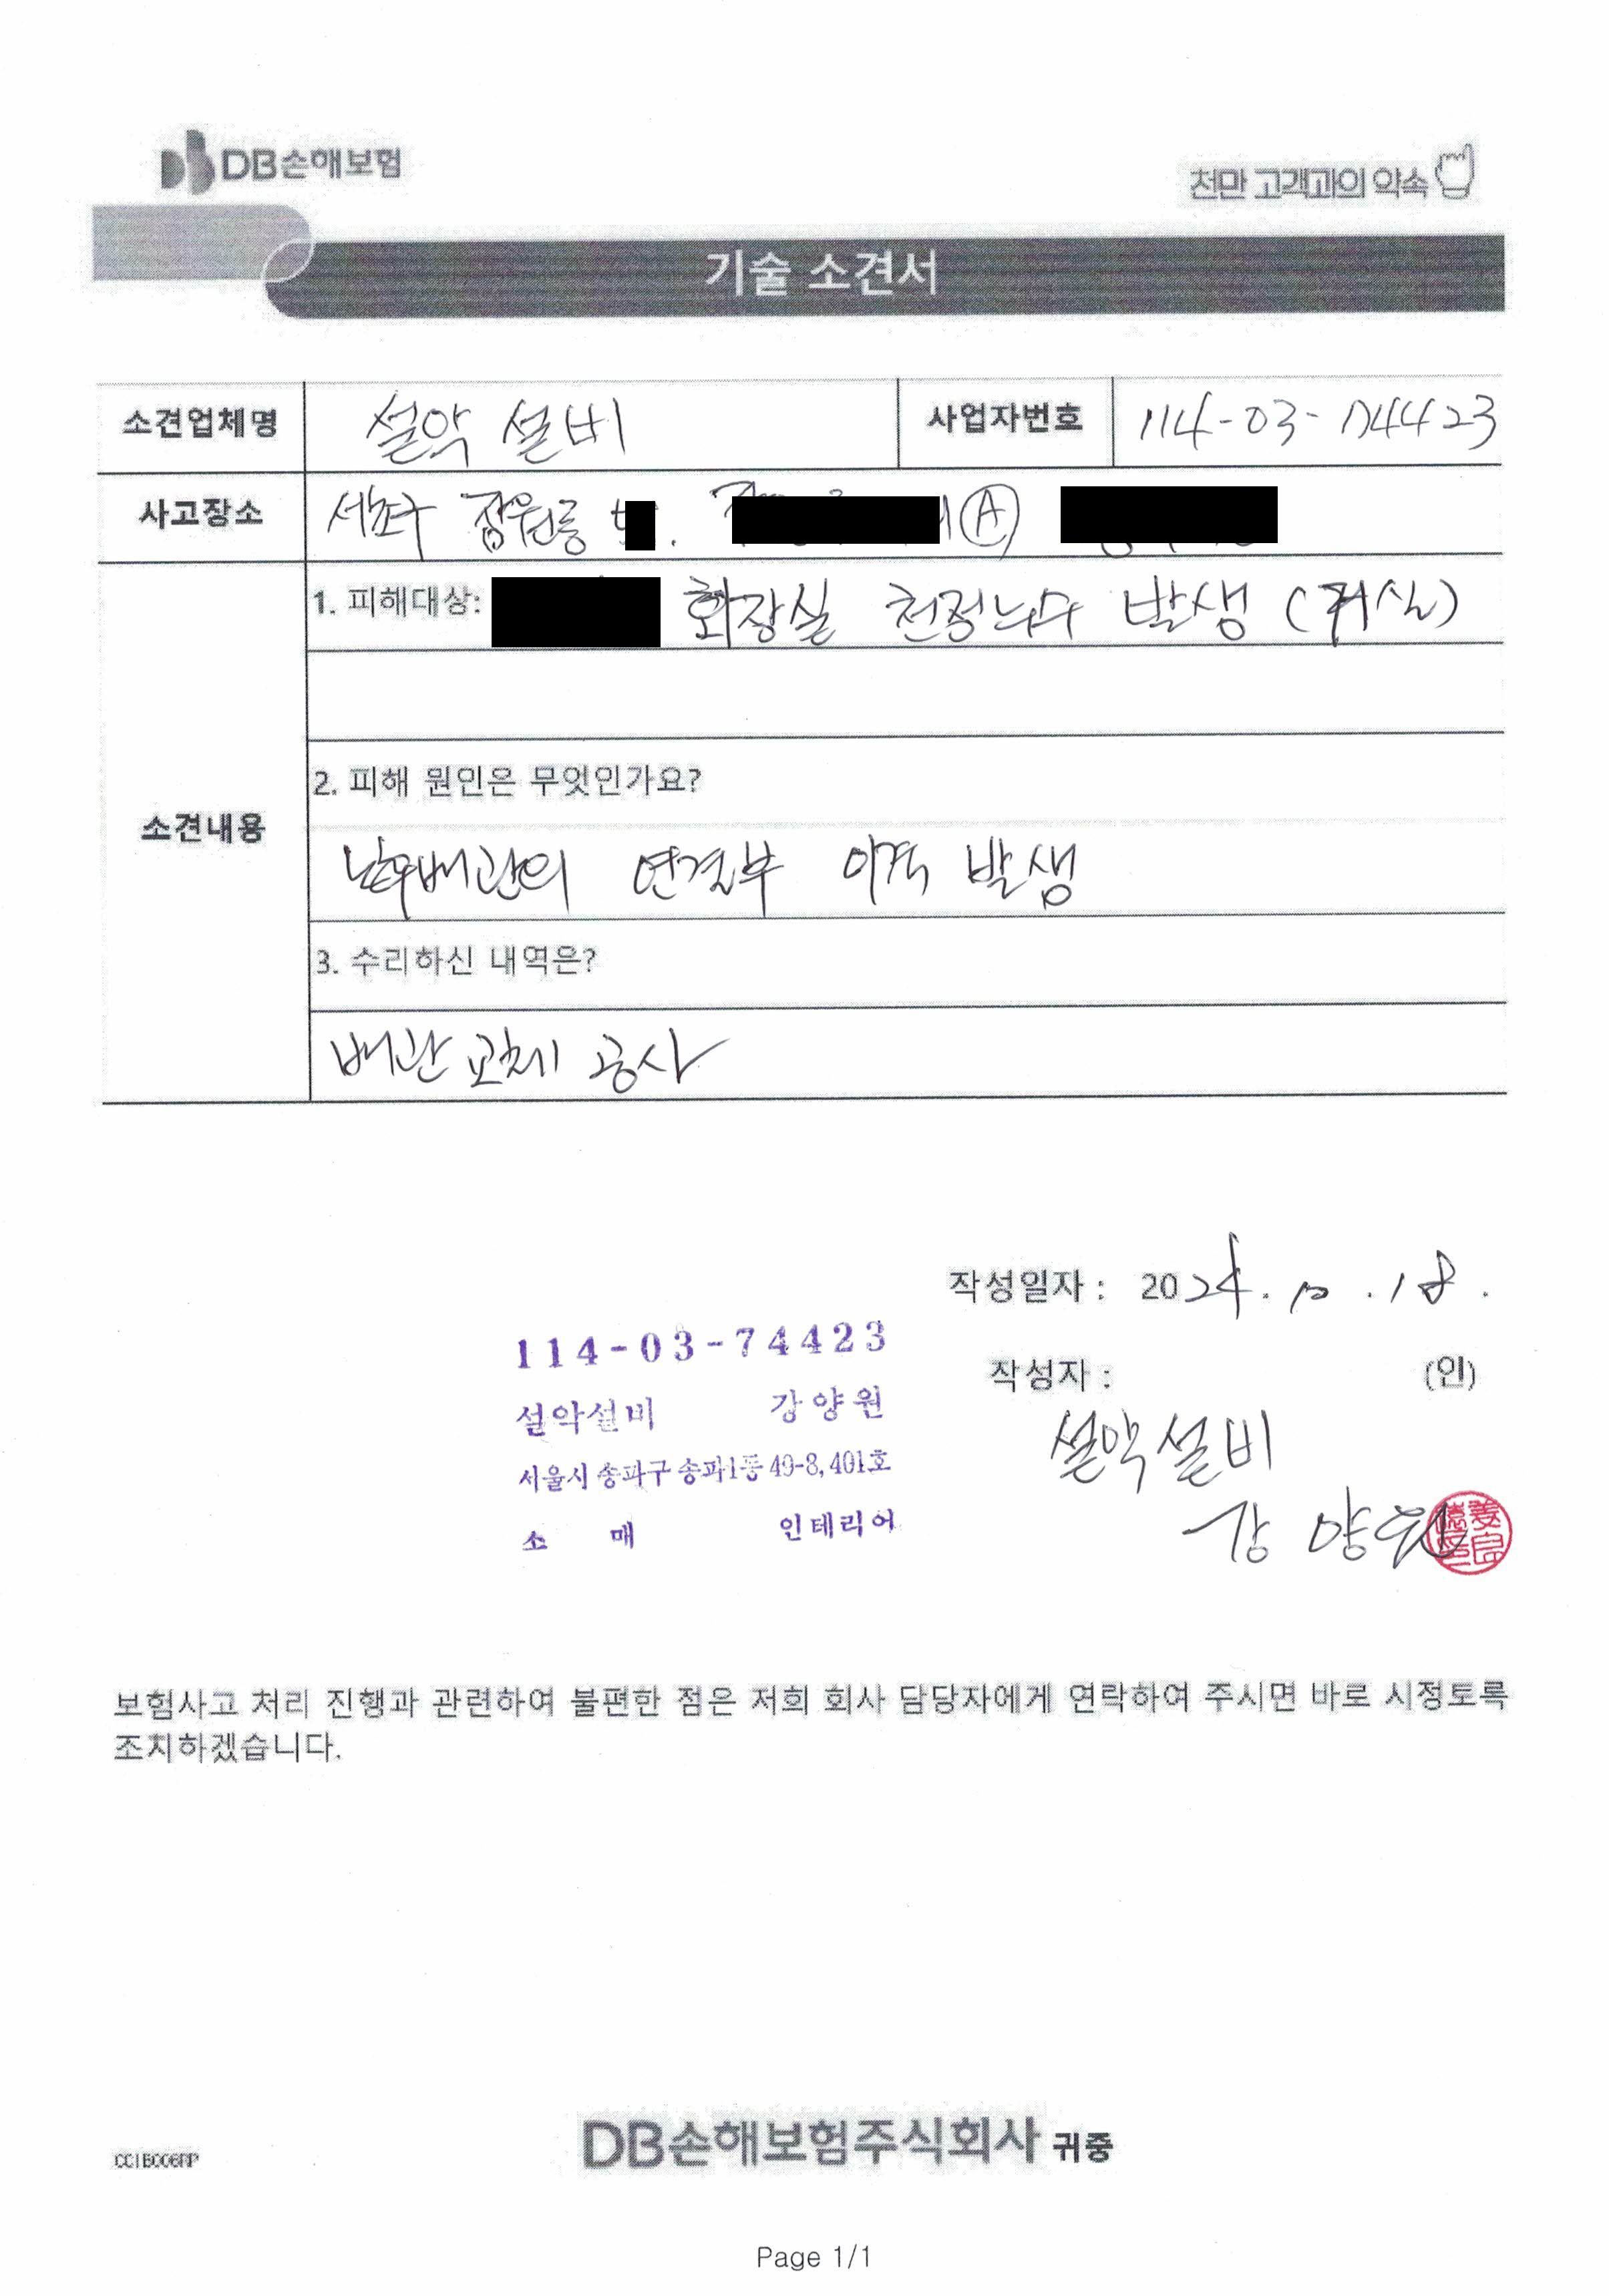 DB손해보험
천만 고객과의 약속
기술 소견서
소견업체명 설악 설비 사업자번호 114-03-74423
사고장소 서초구 잠원동 Ⓐ
소견내용
1. 피해대상: 화장실 천정누수 발생 (거실)
2. 피해 원인은 무엇인가요?
배관의 연결부 이격 발생
3. 수리하신 내역은?
배관 교체 공사
작성일자 : 2024. 10 .18.
114-03-74423
작성자 : (인)
설악설비 강양원
설악설비
서울시 송파구 송파1동 49-8, 401호
강 양원
소 매 인테리어
보험사고 처리 진행과 관련하여 불편한 점은 저희 회사 담당자에게 연락하여 주시면 바로 시정토록
조치하겠습니다.
DB손해보험주식회사 귀중
CCIB006RP
Page 1/1